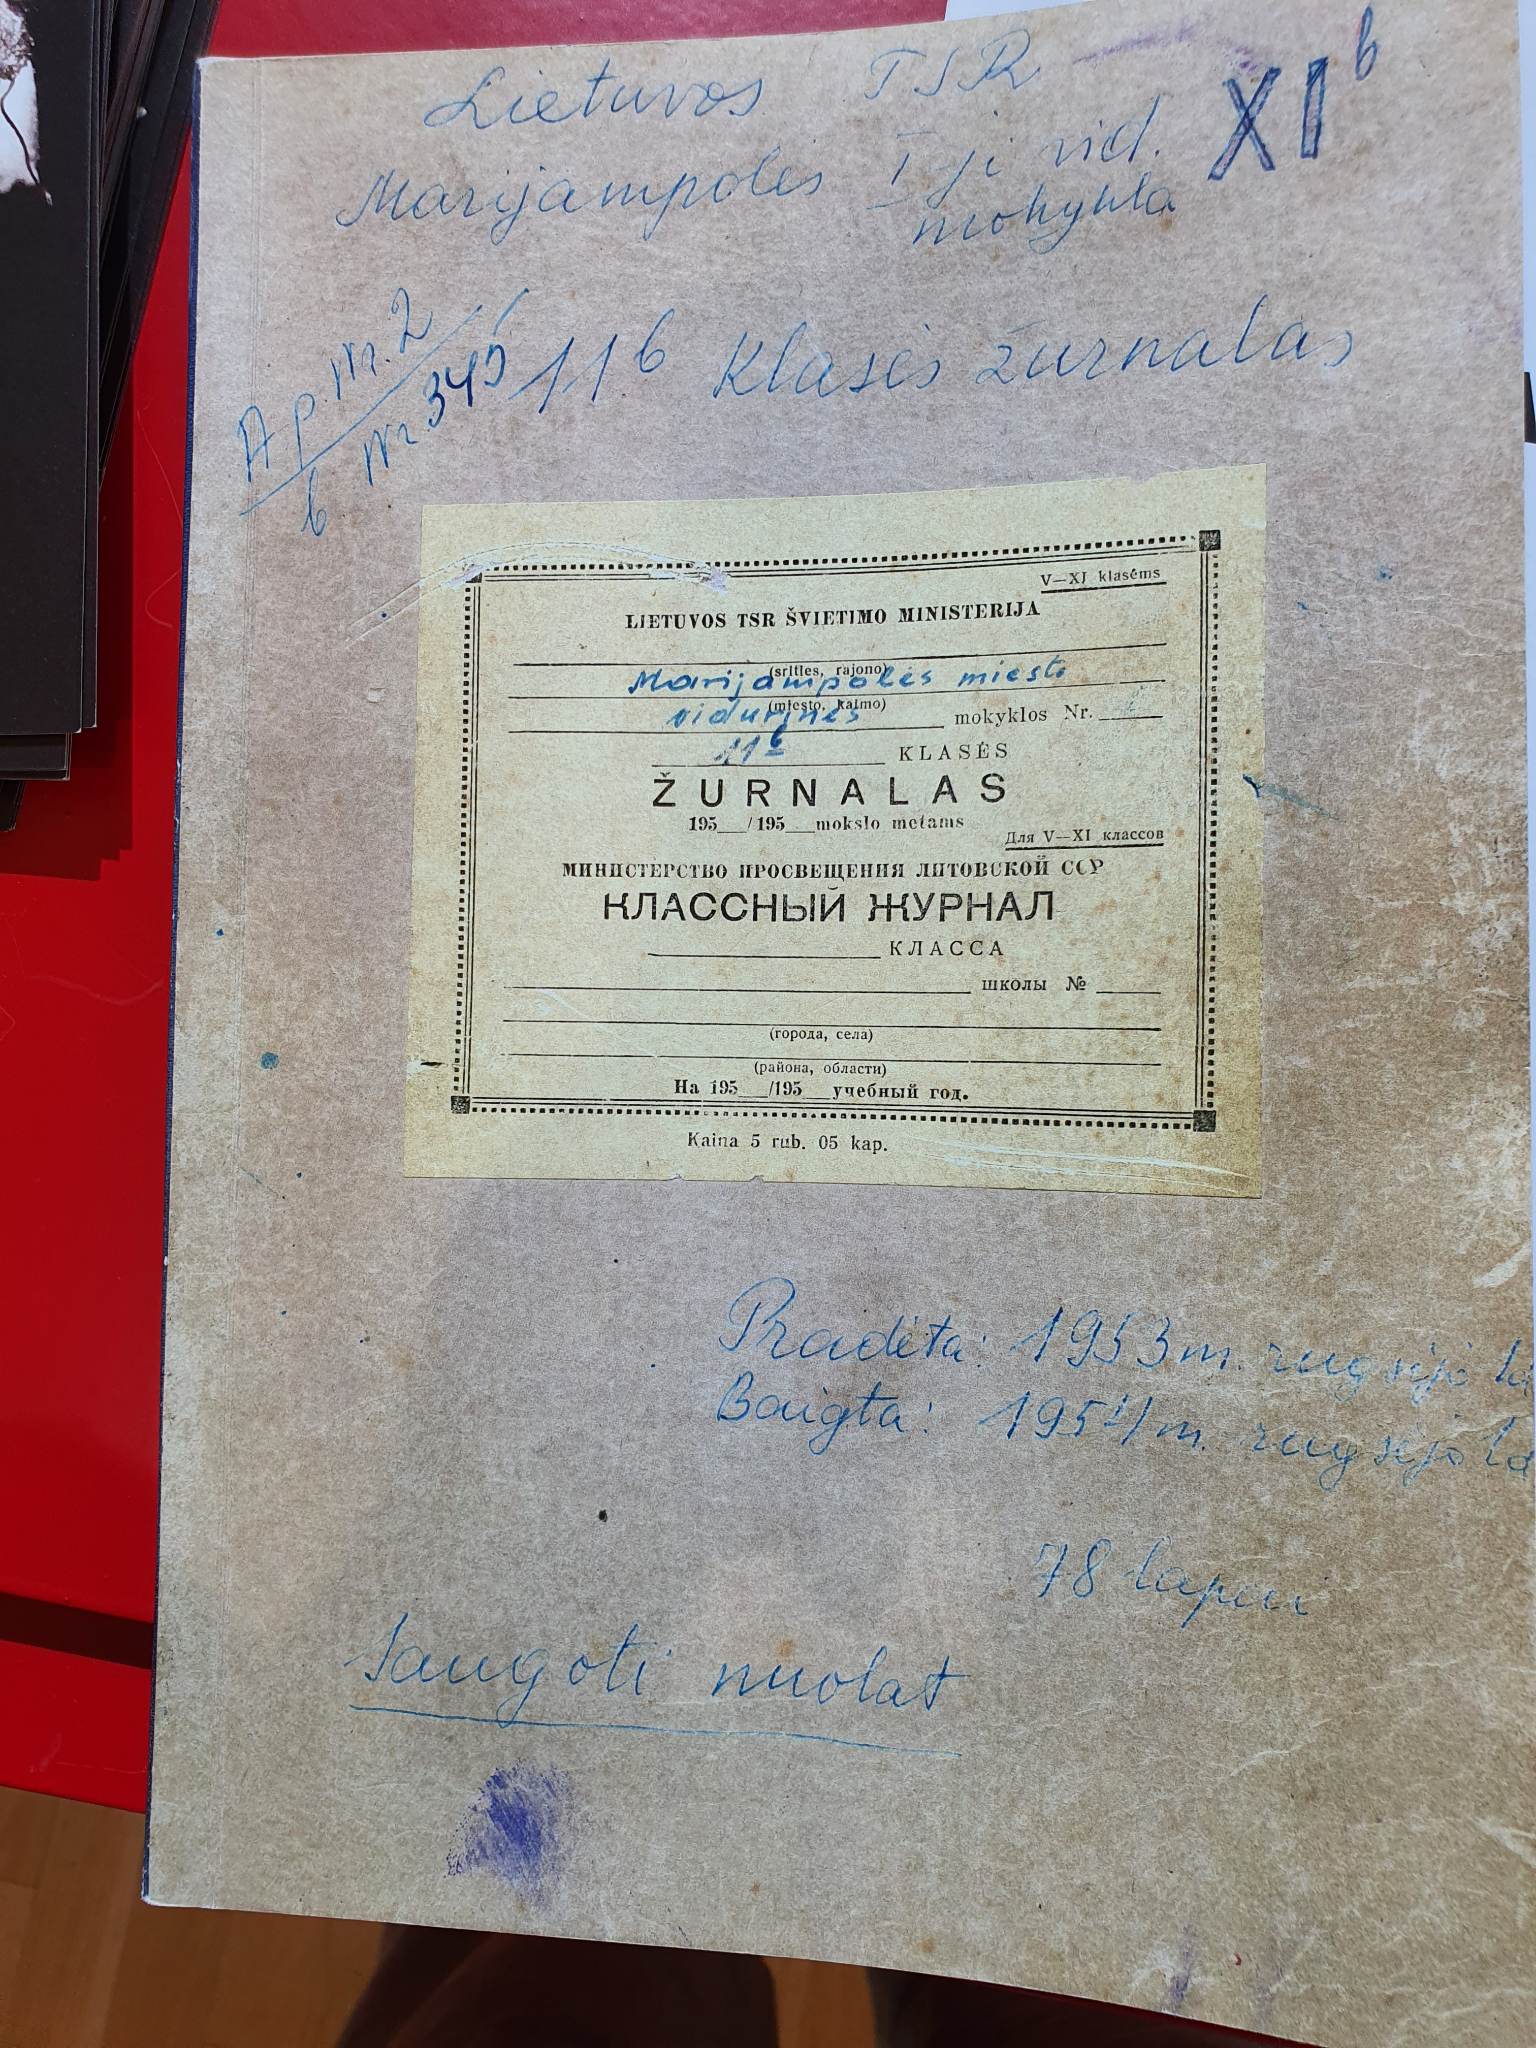 Lietuvos TSR
XI b
Marijampolės I-ji vid.
mokykla
Ap. Nr. 2
b. Nr. 345
11 b klasės žurnalas
V—XI klasėms
LIETUVOS TSR ŠVIETIMO MINISTERIJA
(srities, rajono)
Marijampolės miesto
(miesto, kaimo)
vidurinės mokyklos Nr.
11 b KLASĖS
ŽURNALAS
195___/195___mokslo metams
Для V—XI классов
МИНИСТЕРСТВО ПРОСВЕЩЕНИЯ ЛИТОВСКОЙ ССР
КЛАССНЫЙ ЖУРНАЛ
КЛАССА
школы №
(города, села)
(района, области)
На 195___/195___учебный год.
Kaina 5 rub. 05 kap.
Pradėta: 1953 m. rugsėjo
Baigta: 1954 m. rugsėjo
78 lapai
Saugoti nuolat